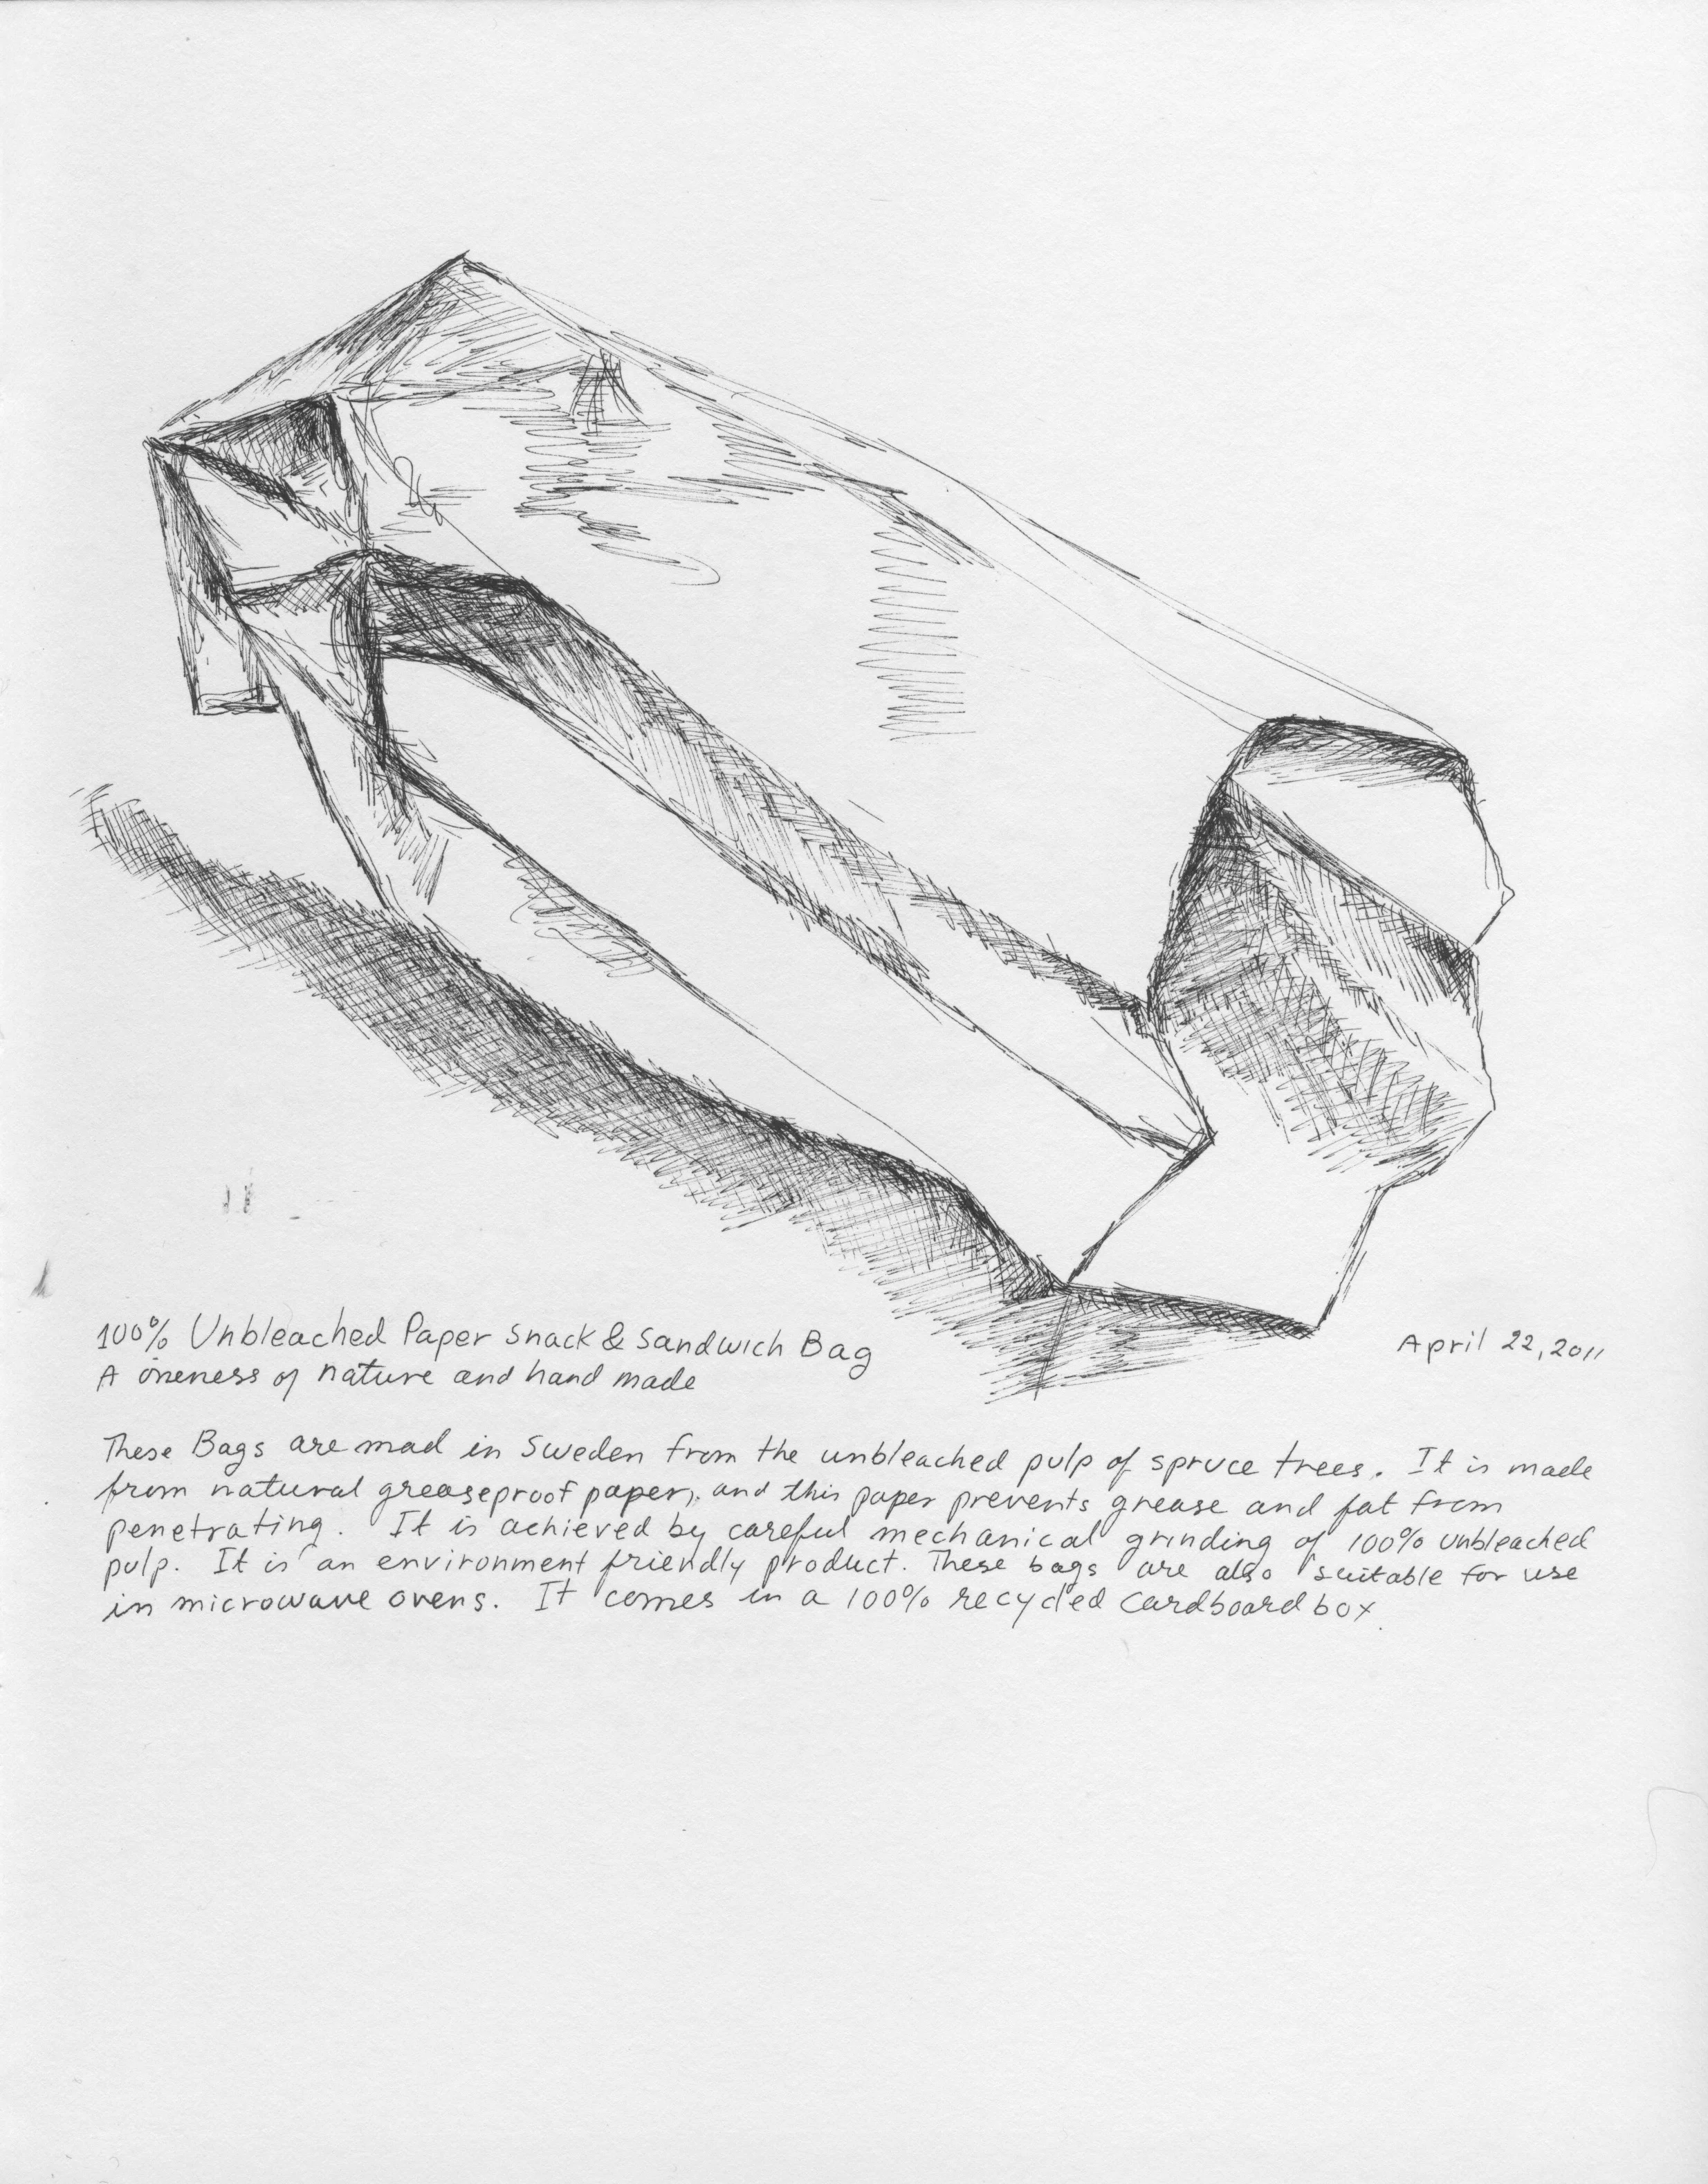 100% Unbleached Paper Snack & Sandwich Bag
April 22, 2011
A oneness of nature and hand made
These Bags are mad in Sweden from the unbleached pulp of spruce trees. It is made
from natural greaseproof paper, and this paper prevents grease and fat from
penetrating. It is achieved by careful mechanical grinding of 100% unbleached
pulp. It is an environment friendly product. These bags are also suitable for use
in microwave ovens. It comes in a 100% recycled cardboard box.